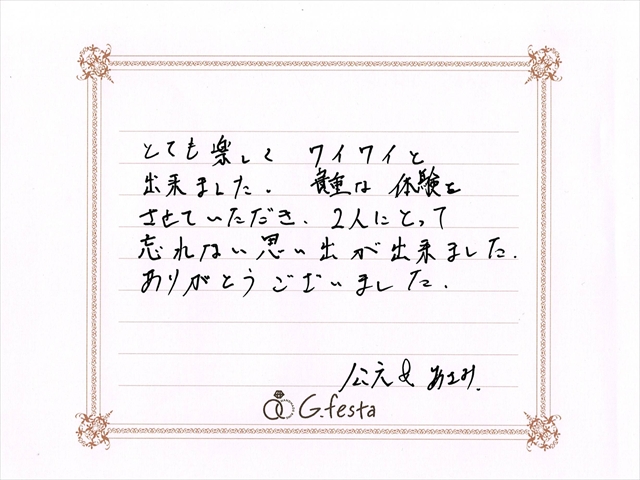 とても楽しく ワイワイと
出来ました。 貴重な 体験を
させていただき、2人にとって
忘れない思い出が出来ました.
ありがとうございました.
公亮 & あさみ.
G.festa